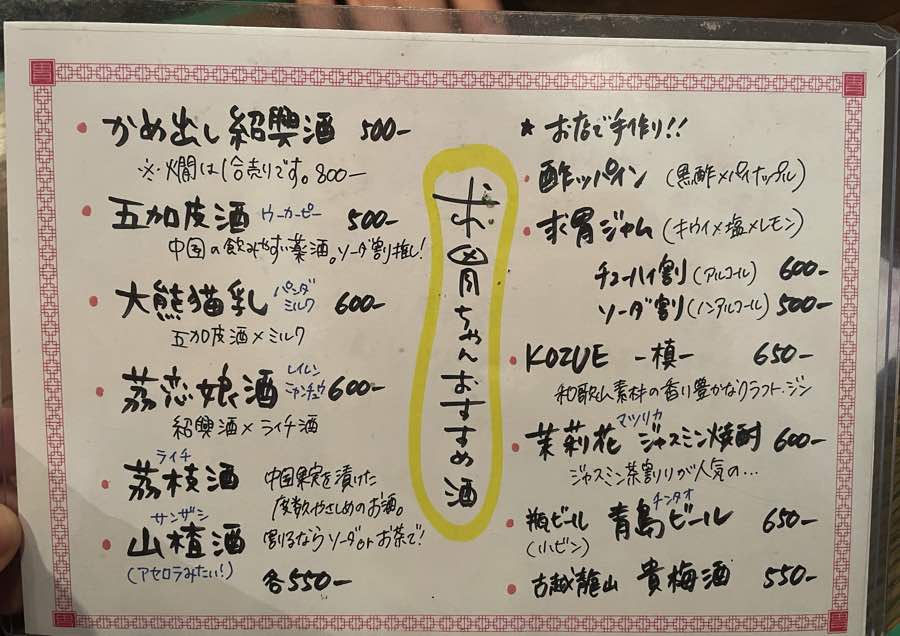 求胃ちゃんおすすめ酒
・かめ出し紹興酒 500-
※燗は1合売りです。800-
・五加皮酒 ウーカーピー 500-
中国の飲みやすい薬酒。ソーダ割推し!
・大熊猫乳 パンダミルク 600-
五加皮酒×ミルク
・茘恋娘酒 レイレンニャンチュウ 600-
紹興酒×ライチ酒
ライチ
・茘枝酒 中国果実を漬けた
度数やさしめのお酒。
サンザシ
・山楂酒 割るならソーダorお茶で!
(アセロラみたい!) 各550-
★お店で手作り!!
・酢ッパイン (黒酢×パイナップル)
・求胃ジャム (キウイ×塩×レモン)
チューハイ割(アルコール) 600-
ソーダ割(ノンアルコール) 500-
・KOZUE -槙- 650-
和歌山素材の香り豊かなクラフト・ジン
マツリカ
・茉莉花 ジャスミン焼酎 600-
ジャスミン茶割りが人気の…
チンタオ
・瓶ビール 青島ビール 650-
(ハルビン)
・古越龍山 貴梅酒 550-